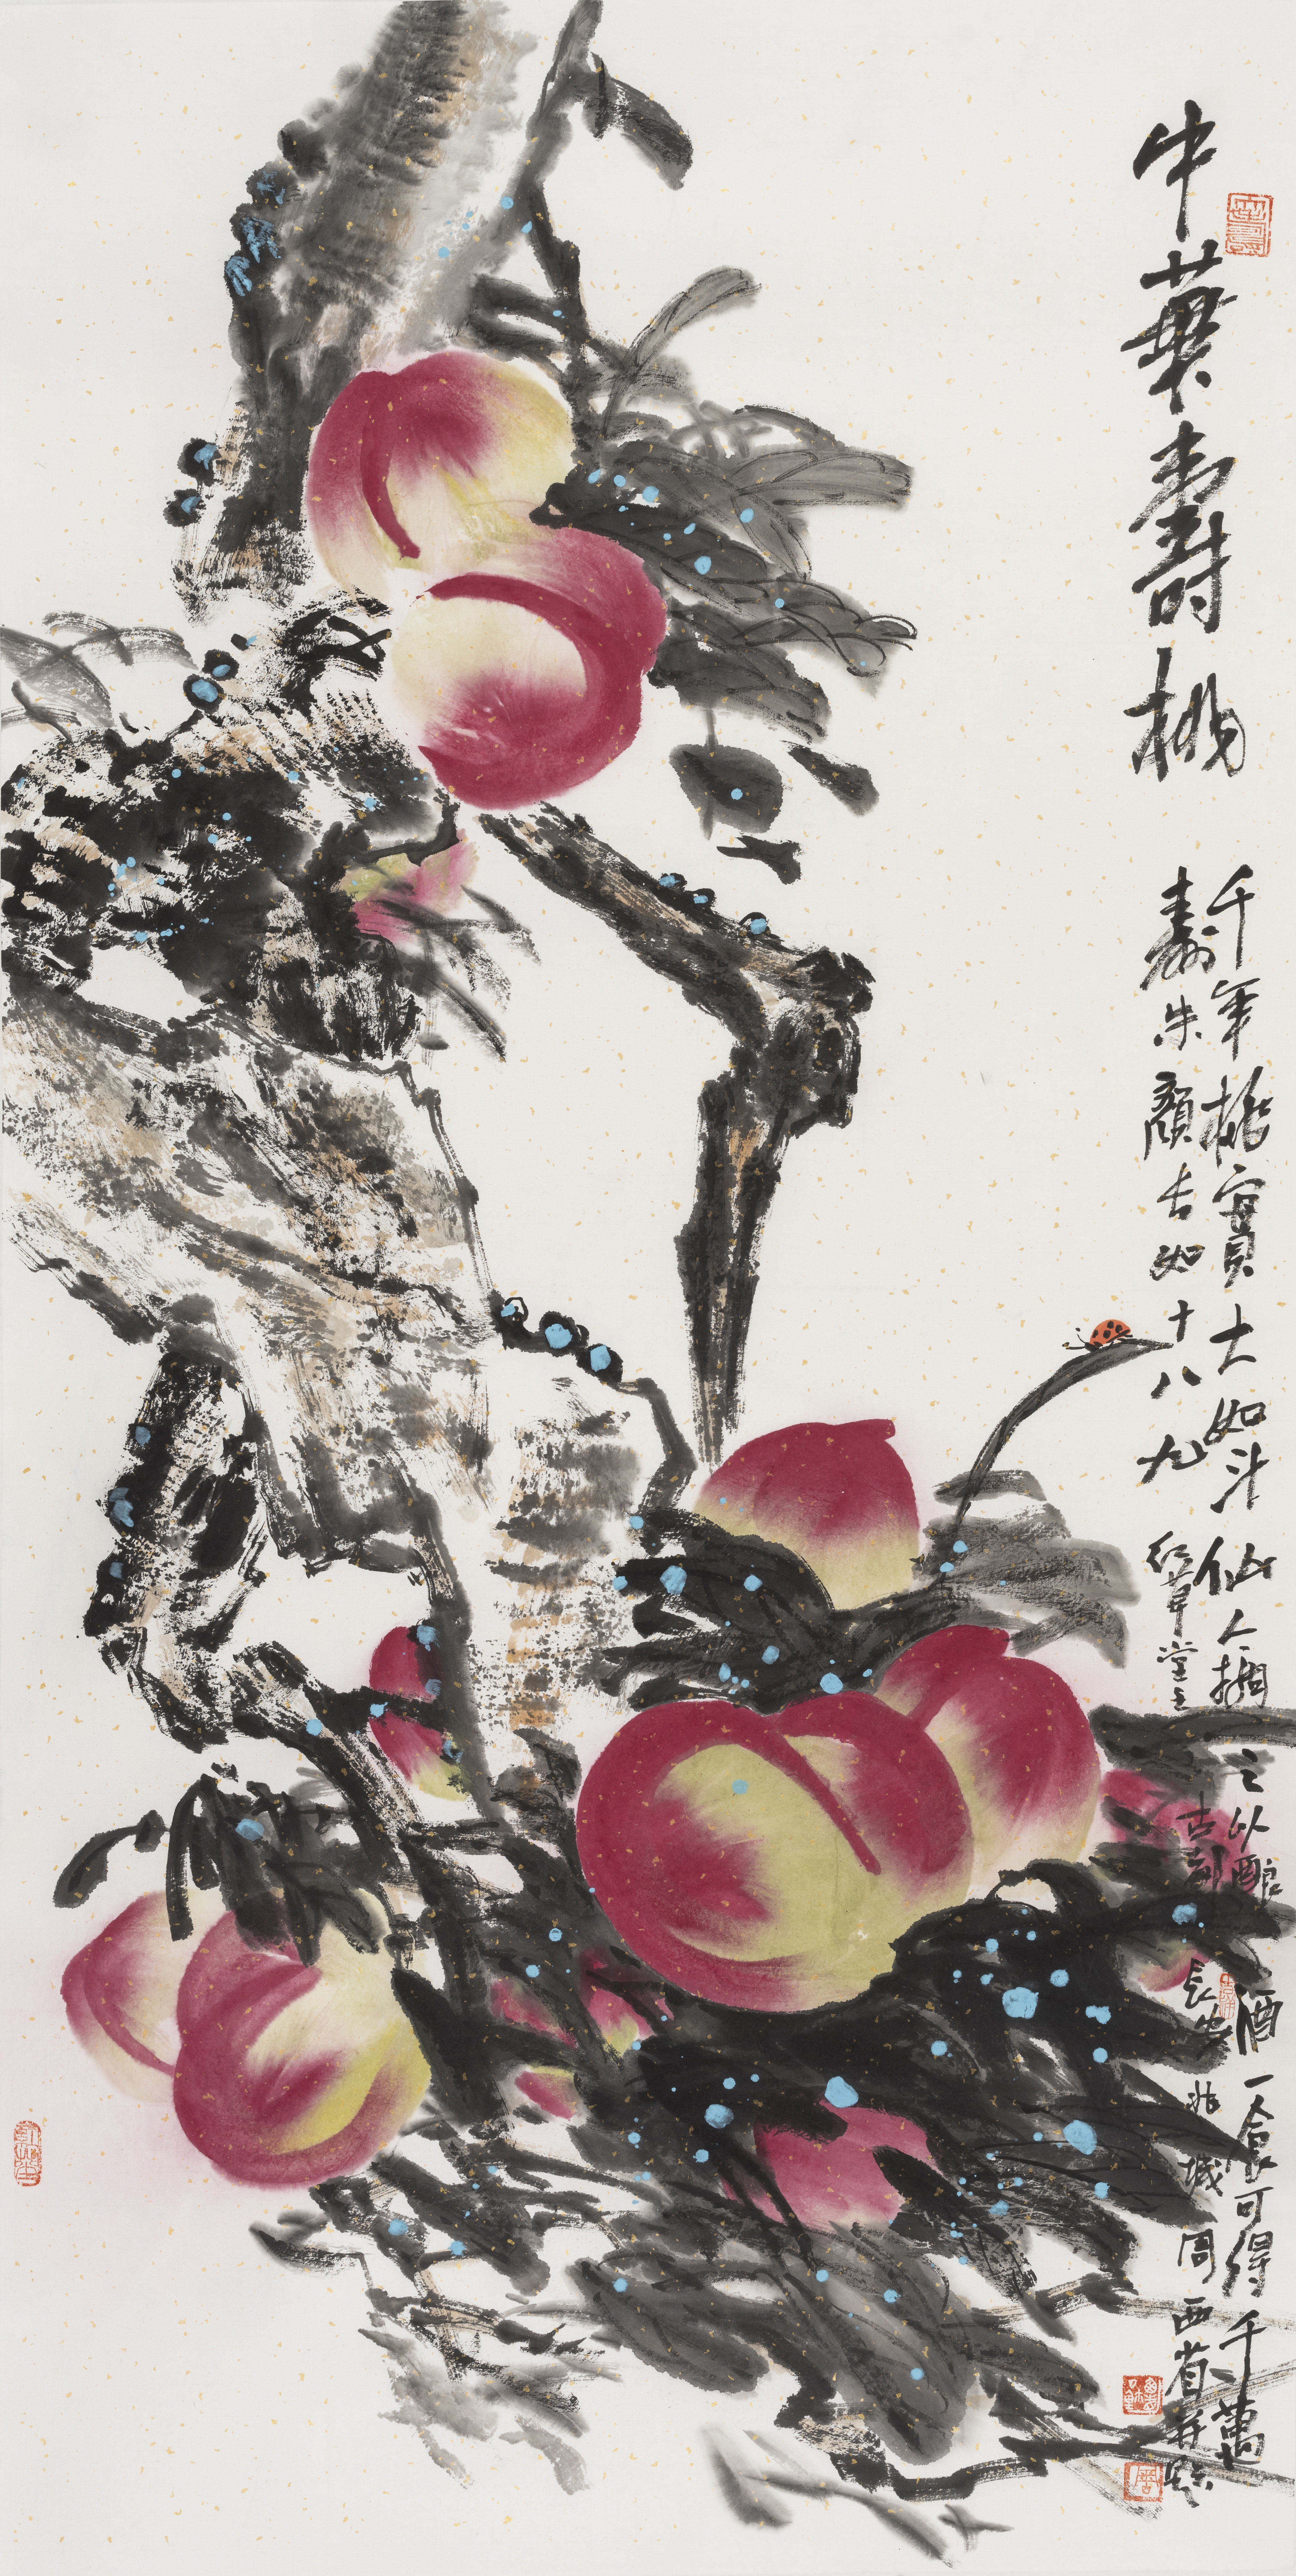 中華壽桃
千年桃實大如斗仙人摘之以釀酒一食可得千萬
壽朱顏長如十八九 紅草堂主 古都長安北城周西省并題